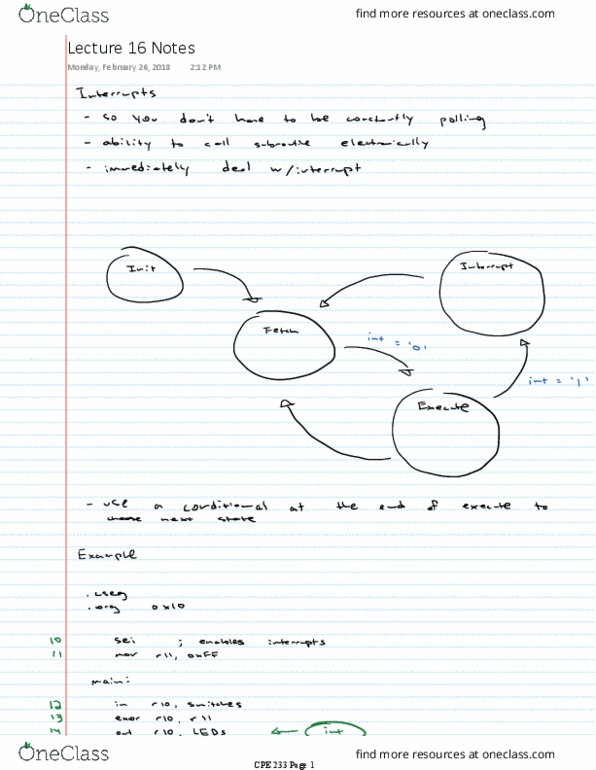 OneClass
find more resources at oneclass.com
Lecture 16 Notes
Monday, February 26, 2018 2:12 PM
Interrupts
- so you don't have to be constantly polling
- ability to call subroutine electronically
- immediately deal w/interrupt
Init
Interrupt
Fetch
int = '0'
int = '1'
Execute
- use a conditional at the end of execute to
choose next state
Example
.cseg
.org 0x10
10 sei ; enables interrupts
11 mov r11, 0xFF
main:
12 in r10, switches
13 exor r10, r11
14 out r10, LEDs int
OneClass
find more resources at oneclass.com
CPE 233 Page 1